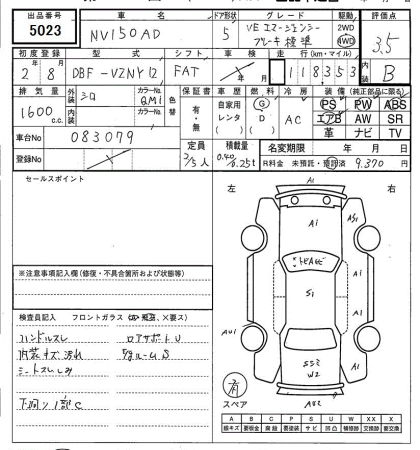 出品番号 車名 ドア形状 グレード 駆動 評価点
5023 NV150AD 5 VE エマージェンシーブレーキ標準 2WD 4WD 3.5
初度登録 型式 シフト 車検 走行(km・マイル) 内装
2年8月 DBF-VZNY12 FAT 118353 B
排気量 外装 シロ カラーNo. QM1 色替 保証書 車歴 燃料 冷房 装備(純正部品に限る)
1600 c.c. 内装 カラーNo. 有・無 自家用 レンタ G D AC PS PW ABS
エアB AW SR
革 ナビ TV
車台No 083079
定員 積載量 名変期限 年 月 日
登録No 2/5人 0.40/0.25t R料金 未預託・預託済 9.370円
セールスポイント
左 右
※注意事項記入欄(修復・不具合箇所および状態等)
検査員記入 フロントガラス ×要ス)
ハンドルスレ リアサポートU
内装キズ汚れ ラゲルームS
シートスレしみ
下廻り1部C
A1
A1 AS1
トビAピ
S1
AU1 A1
SS2
W2
A1
AS2
有
スペア
A B C P S U W X XX
線キズ 要板金 腐蝕 要塗装 サビ 凹凸 補修跡 要交換 交換跡